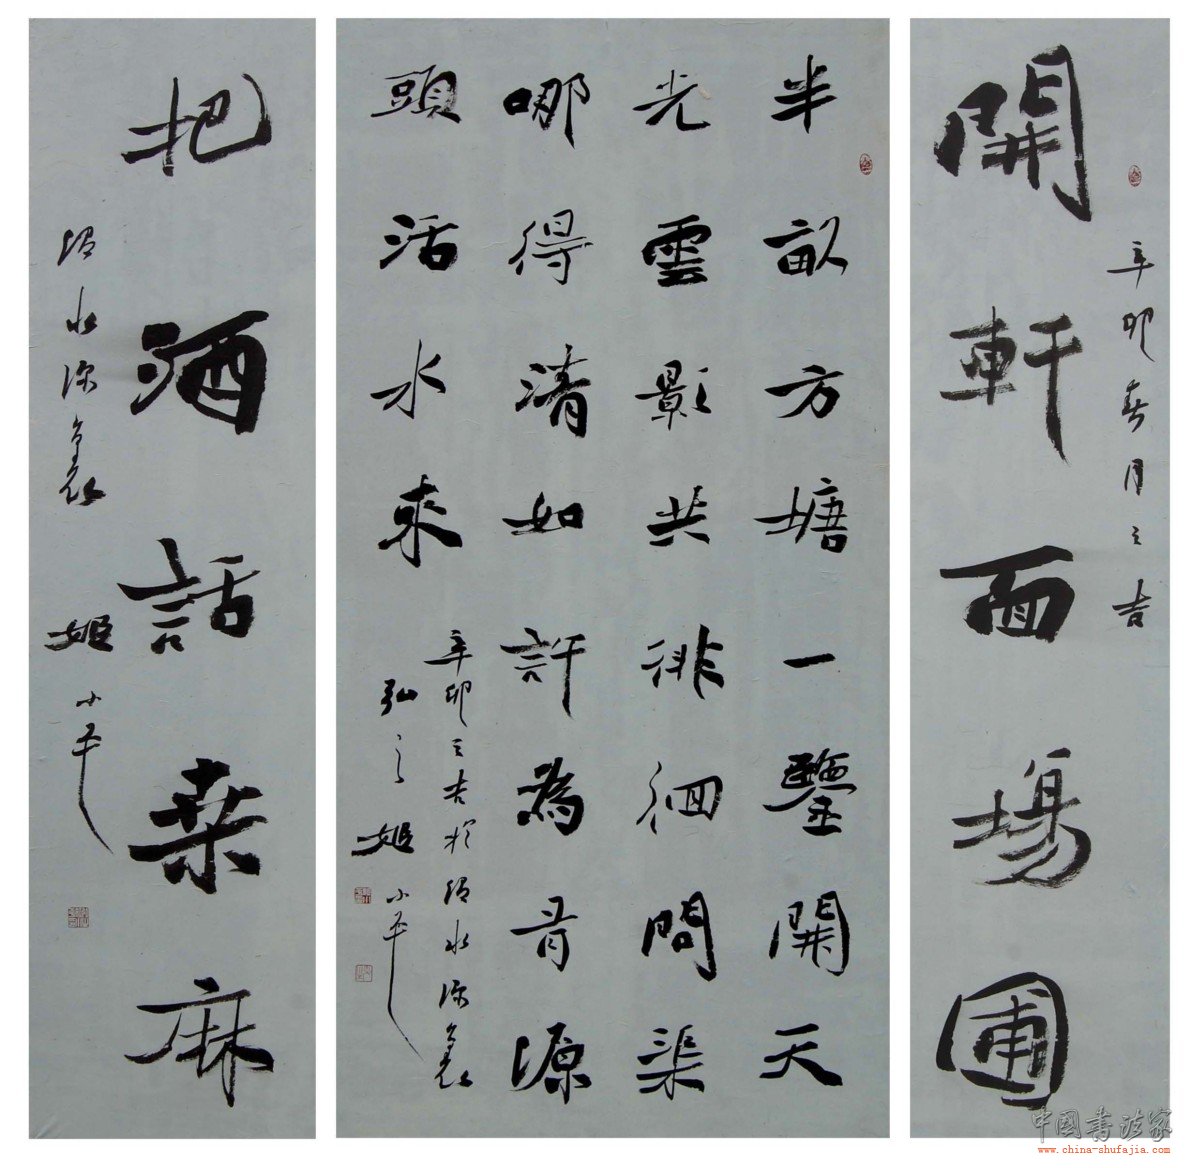 開軒面場圃
辛卯春月之吉
半畝方塘一鑒開天
光雲影共徘徊問渠
哪得清如許為有源
頭活水來
辛卯之吉於水
弘之姬小平
把酒話桑麻
水
姬小平
中国书法家
www.china-shufajia.com